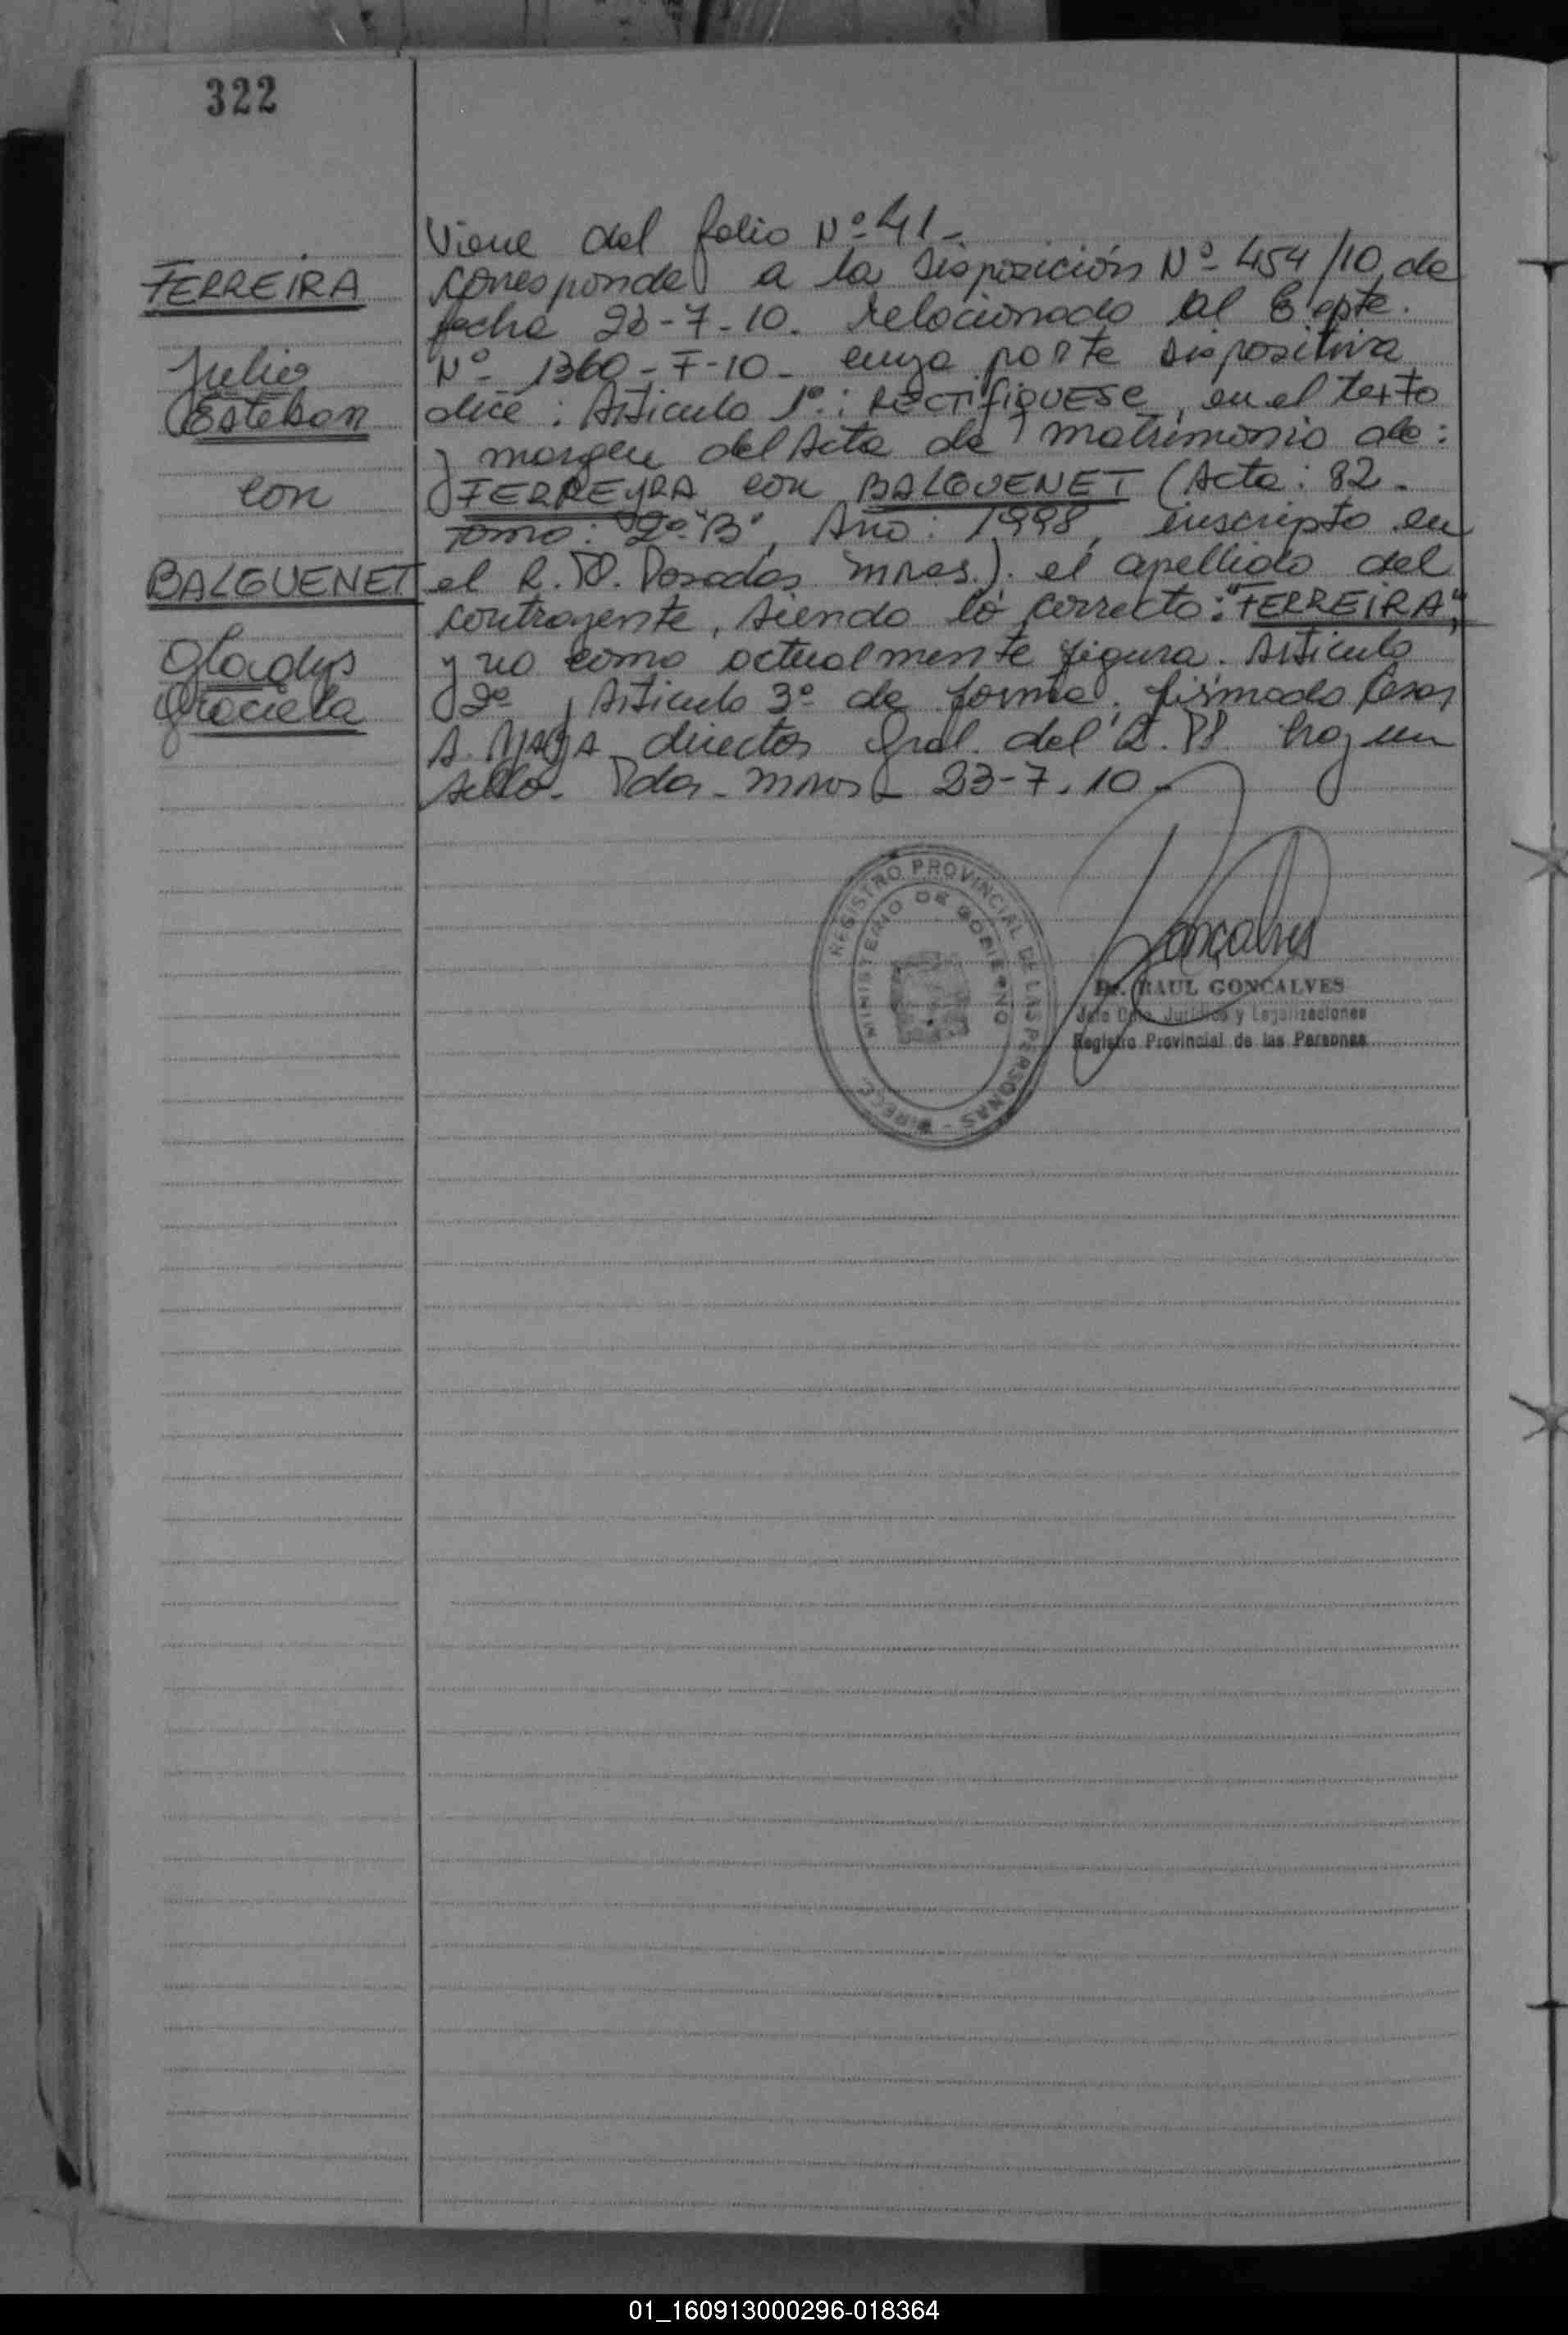 322
FERREIRA
Julio
Esteban
con
BALGUENET
Gladys
Graciela
Viene del folio Nº 41-
corresponde a la Disposición Nº 454/10, de
fecha 23-7-10. relacionado al Expte.
Nº 1360-F-10- cuya parte dispositiva
dice: Articulo 1º: RECTIFIQUESE, en el texto
y margen del Acta de matrimonio de:
FERREYRA con BALGUENET (Acta: 82-
Tomo: 2º "B", Año: 1998, inscripto en
el R.P. Posadas Mnes.). el apellido del
contrayente, siendo lo correcto: "FERREIRA",
y no como actualmente figura. Articulo
2º y Articulo 3º de forma. firmado Cesar
A. director Gral. del R.PP. hay un
sello. Pdas. Mnes - 23-7-10-
REGISTRO PROVINCIAL DE LAS PERSONAS -
MINISTERIO DE GOBIERNO
Goncalves
Dr. RAUL GONCALVES
Jefe Dpto. Jurídico y Legalizaciones
Registro Provincial de las Personas
01_160913000296-018364